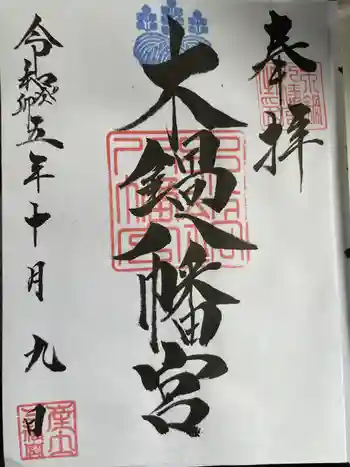 奉拝
大鍋八幡宮
令和癸卯五年十月九日